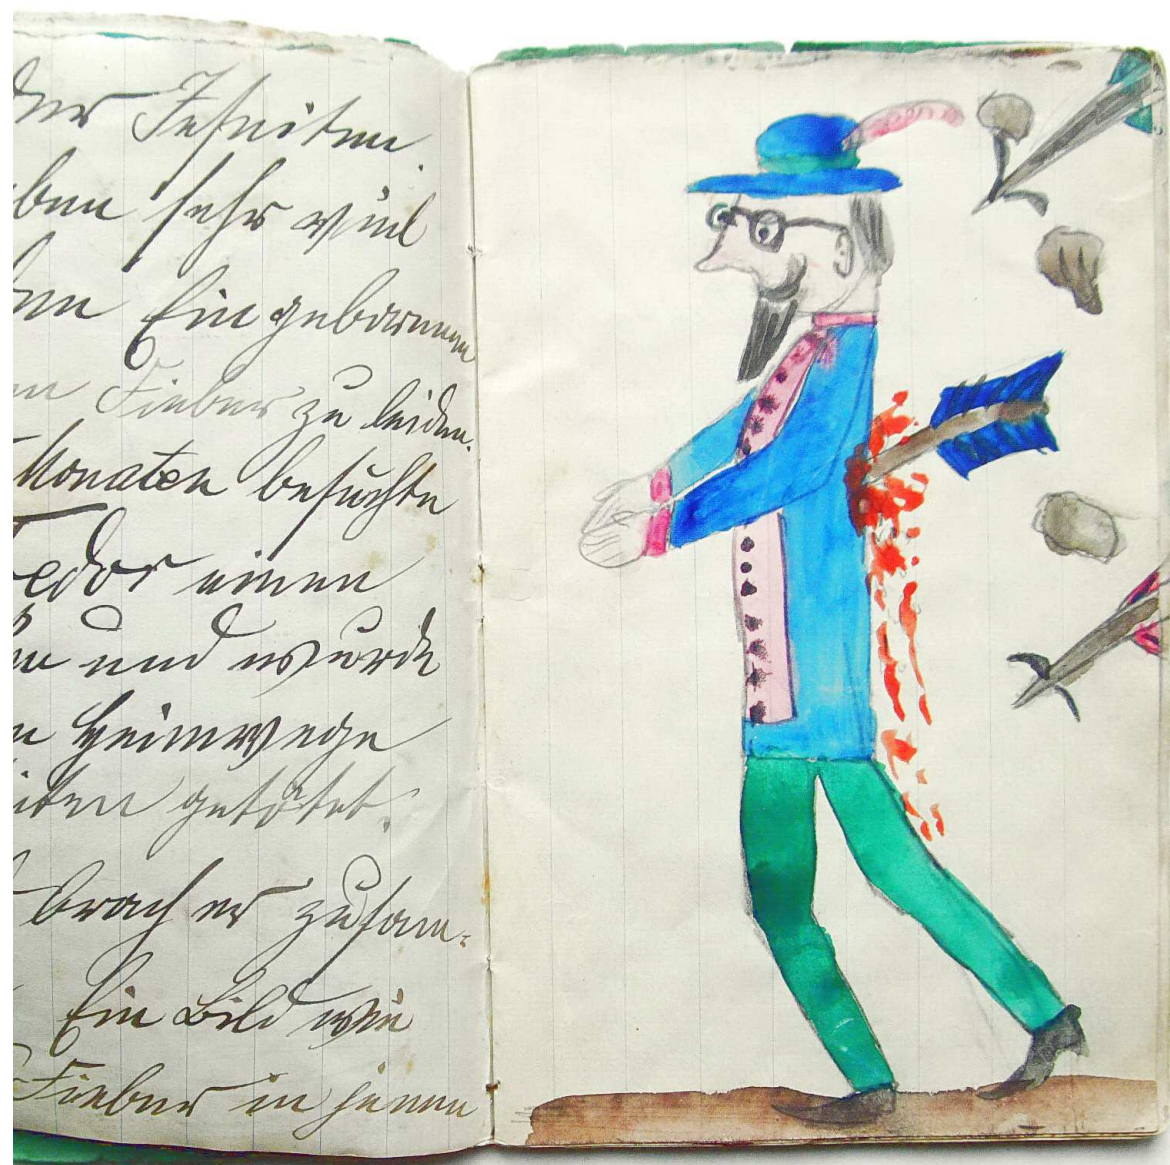 der Jesuiten.
ben sehr viel
Eingeborenen
Fieber zu leiden.
Monaten besuchte
edor einen
und wurde
Heimwege
getötet.
brach er zusam-
Ein Bild wie
Fieber in jenen